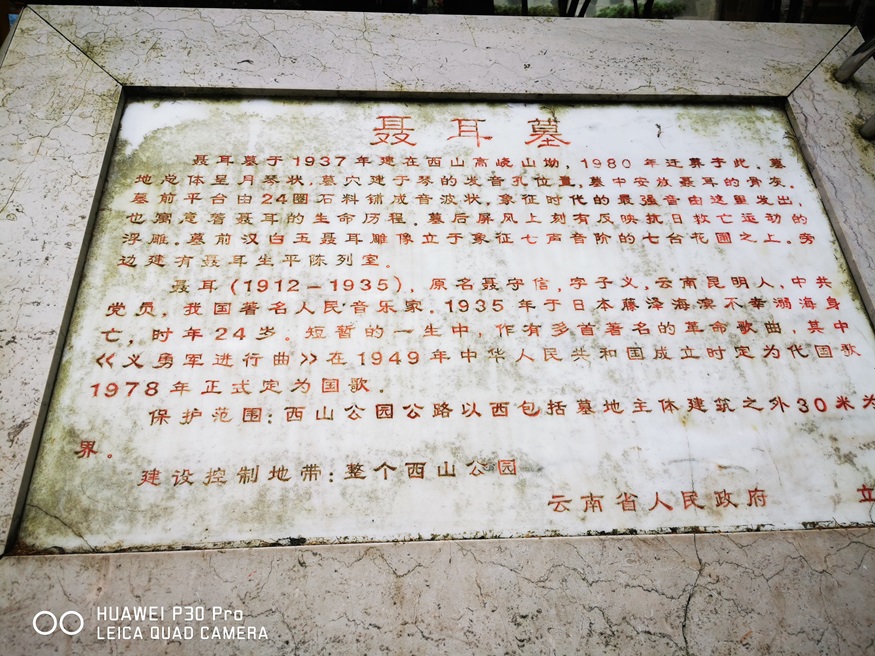 聂耳墓
聂耳墓于1937年建在西山高峣山坳，1980年迁葬于此。墓
地总体呈月琴状，墓穴建于琴的发音孔位置，墓中安放聂耳的骨灰。
墓前平台由24圈石料铺成音波状，象征时代的最强音由这里发出，
也寓意着聂耳的生命历程。墓后屏风上刻有反映抗日救亡运动的
浮雕。墓前汉白玉聂耳雕像立于象征七声音阶的七台花圃之上。旁
边建有聂耳生平陈列室。
聂耳（1912－1935），原名聂守信，字子义，云南昆明人，中共
党员，我国著名人民音乐家。1935年于日本藤泽海滨不幸溺海身
亡，时年24岁。短暂的一生中，作有多首著名的革命歌曲，其中
《义勇军进行曲》在1949年中华人民共和国成立时定为代国歌
1978年正式定为国歌。
保护范围：西山公园公路以西包括墓地主体建筑之外30米为
界。
建设控制地带：整个西山公园
云南省人民政府 立
HUAWEI P30 Pro
LEICA QUAD CAMERA